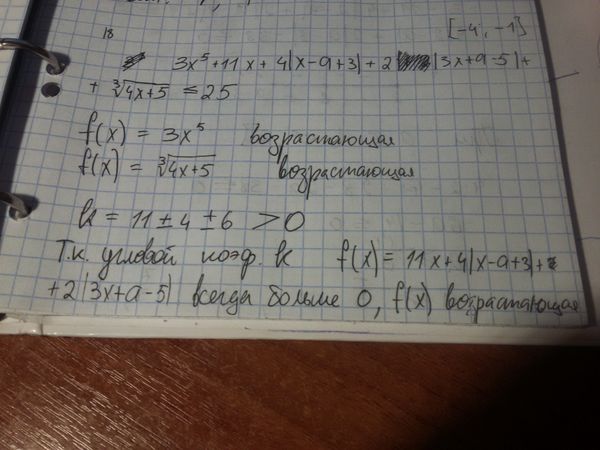 [-4; -1]
18
3x⁵+11x+4|x-a+3|+2|3x+a-5|+
+ ∛(4x+5) ≤ 25
f(x) = 3x⁵ возрастающая
f(x) = ∛(4x+5) возрастающая
k = 11 ± 4 ± 6 > 0
Т.к. угловой коэф. k f(x) = 11x+4|x-a+3|+
+2|3x+a-5| всегда больше 0, f(x) возрастающая